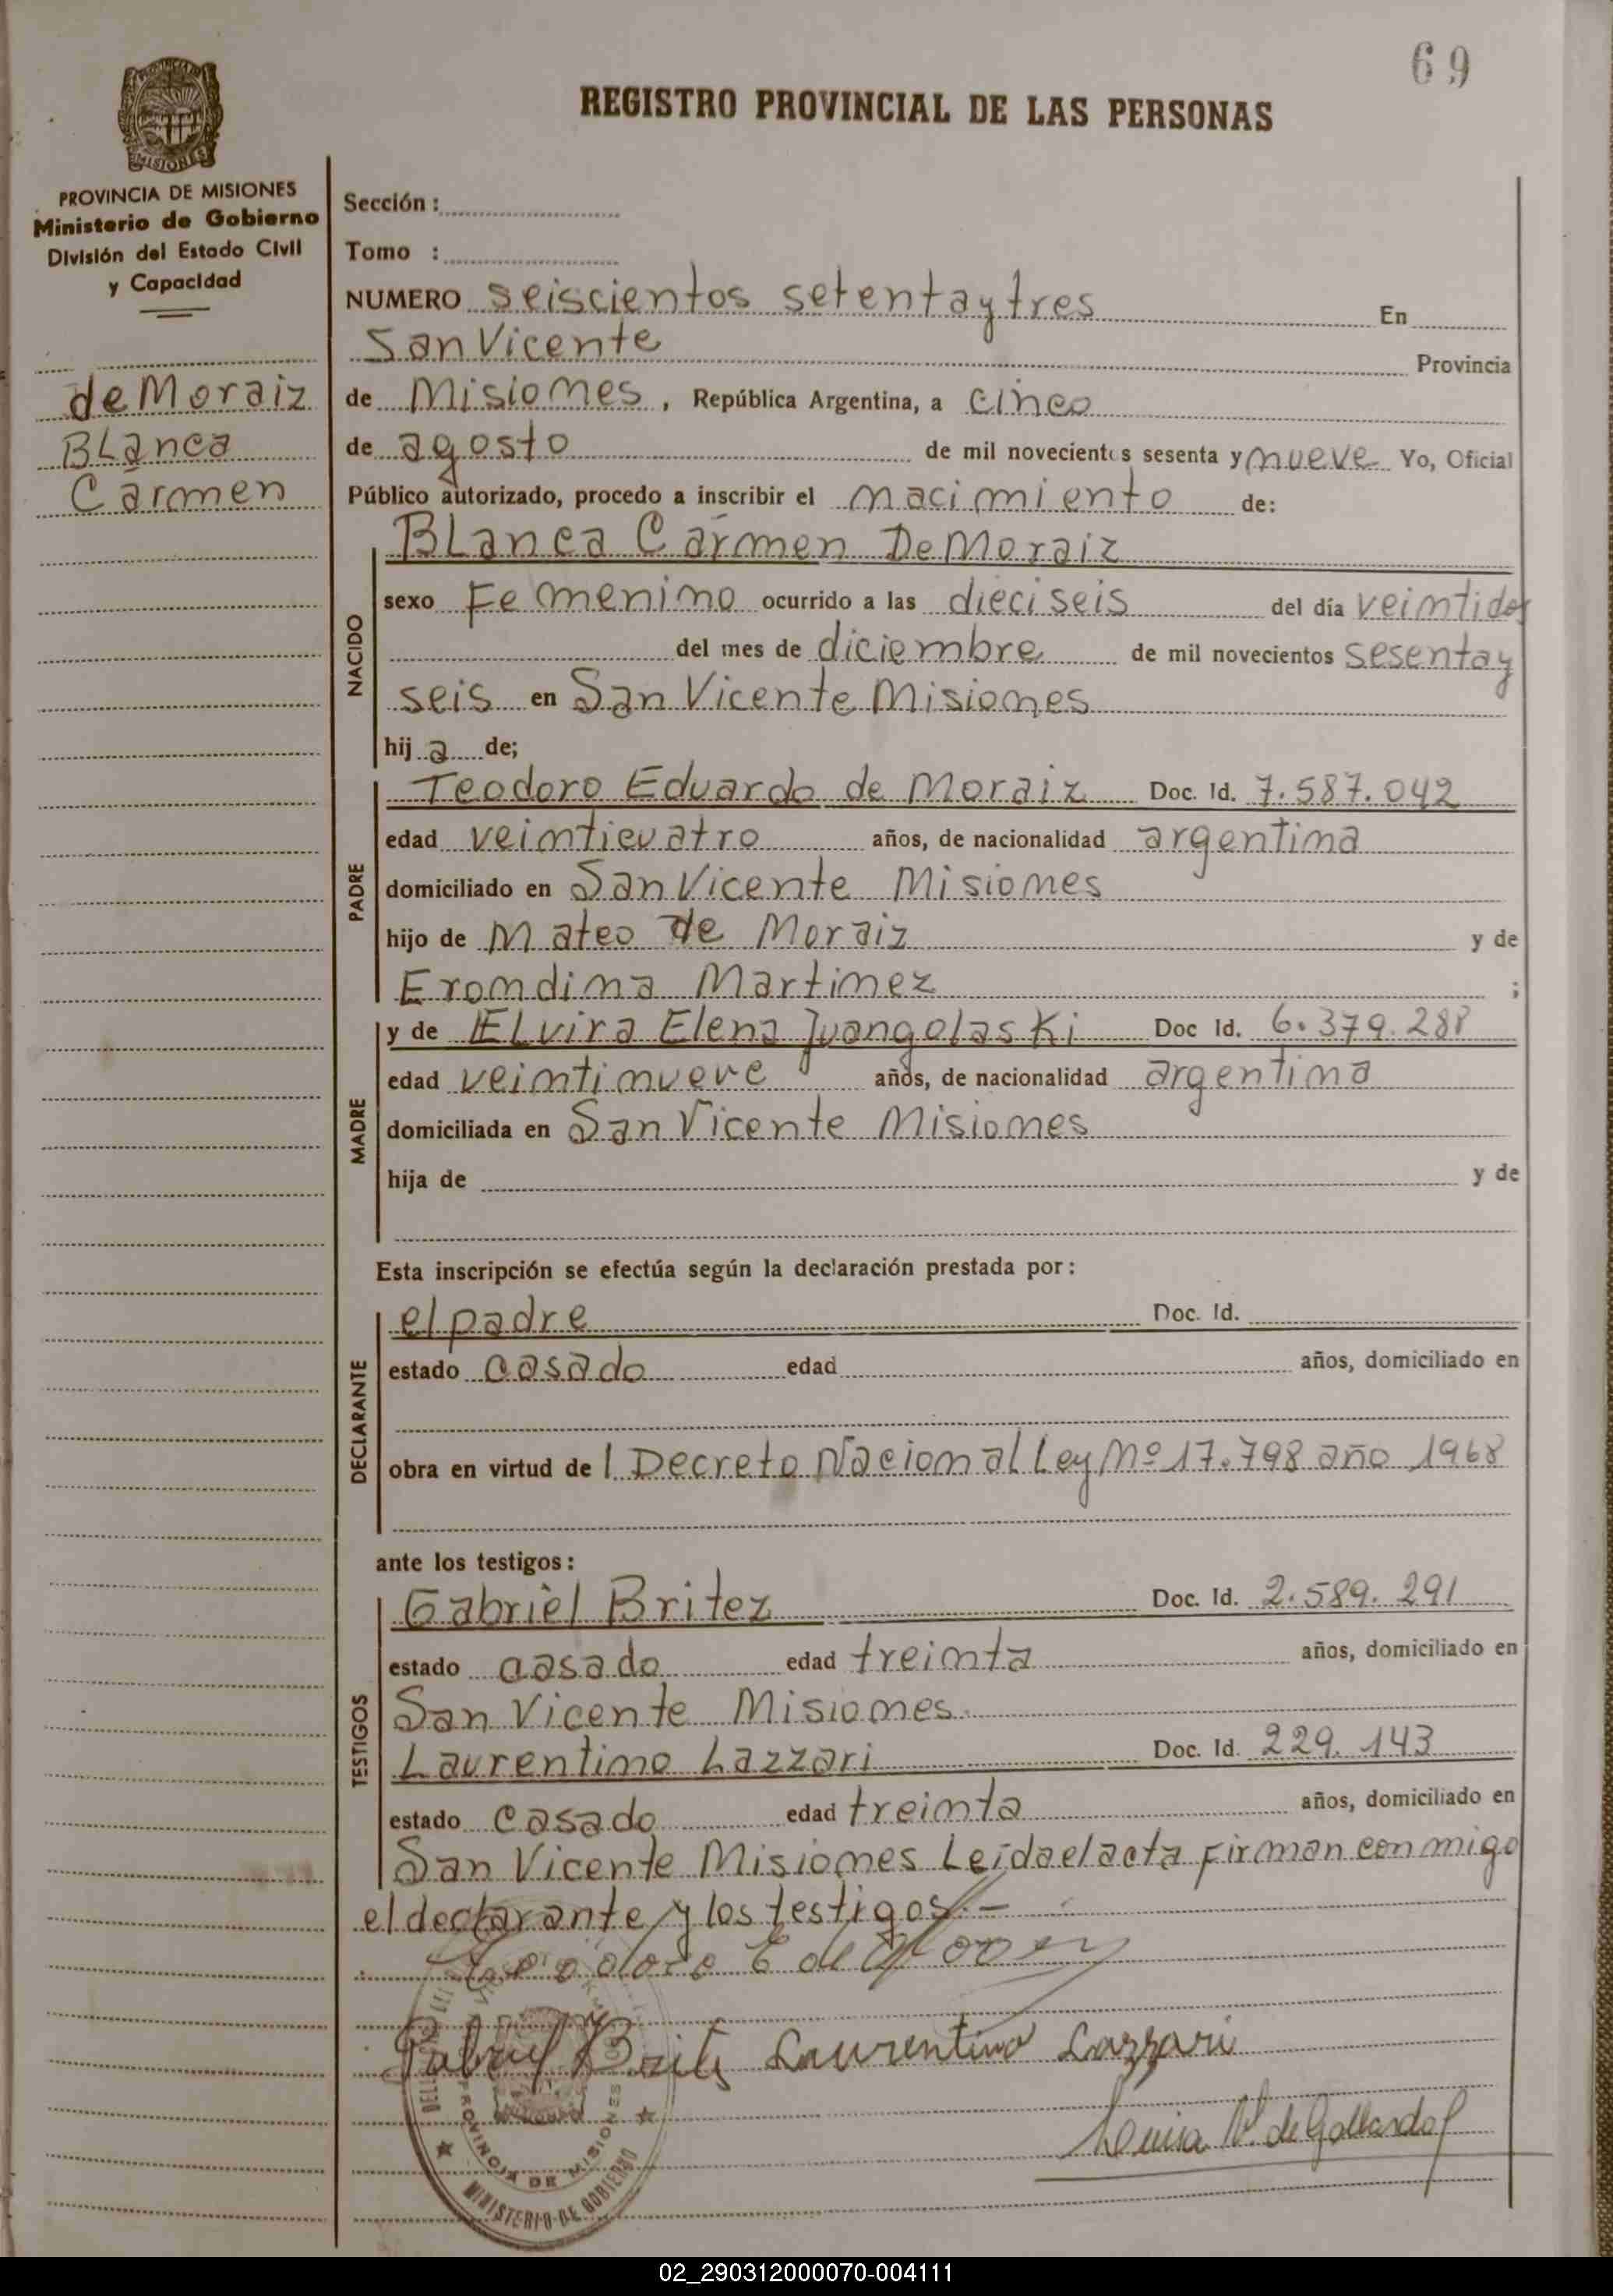 69
REGISTRO PROVINCIAL DE LAS PERSONAS
MISIONES
PROVINCIA DE MISIONES
Ministerio de Gobierno
División del Estado Civil
y Capacidad
de Moraiz
Blanca
Carmen
Sección :
Tomo :
NUMERO seiscientos setenta y tres En
San Vicente Provincia
de Misiones, República Argentina, a cinco
de agosto de mil novecientos sesenta y nueve Yo, Oficial
Público autorizado, procedo a inscribir el nacimiento de:
NACIDO
Blanca Carmen De Moraiz
sexo Femenino ocurrido a las dieciseis del día veintidos
del mes de diciembre de mil novecientos sesenta y
seis en San Vicente Misiones
hij a de;
PADRE
Teodoro Eduardo de Moraiz Doc. Id. 7.587.042
edad veinticuatro años, de nacionalidad argentina
domiciliado en San Vicente Misiones
hijo de Mateo de Moraiz y de
Erondina Martinez ;
MADRE
y de Elvira Elena Juangolaski Doc Id. 6.379.288
edad veintinueve años, de nacionalidad argentina
domiciliada en San Vicente Misiones
hija de y de
Esta inscripción se efectúa según la declaración prestada por :
DECLARANTE
el padre Doc. Id.
estado casado edad años, domiciliado en
obra en virtud de l Decreto Nacional Ley Nº 17.798 año 1968
ante los testigos :
TESTIGOS
Gabriel Britez Doc. Id. 2.589.291
estado casado edad treinta años, domiciliado en
San Vicente Misiones
Laurentino Lazzari Doc. Id. 229.143
estado casado edad treinta años, domiciliado en
San Vicente Misiones Leída el acta firman conmigo
el declarante y los testigos.-
Teodoro E de Moraiz
Gabriel Britez Laurentino Lazzari
Luisa V. de Gallardo
PROVINCIA DE MISIONES
MINISTERIO DE GOBIERNO
02_290312000070-004111